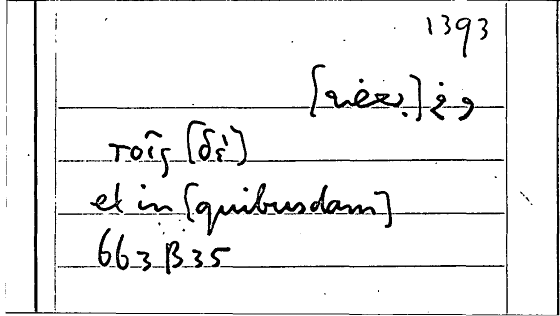 1393
τοῖς [δέ]
et in [quibusdam]
663 β 35